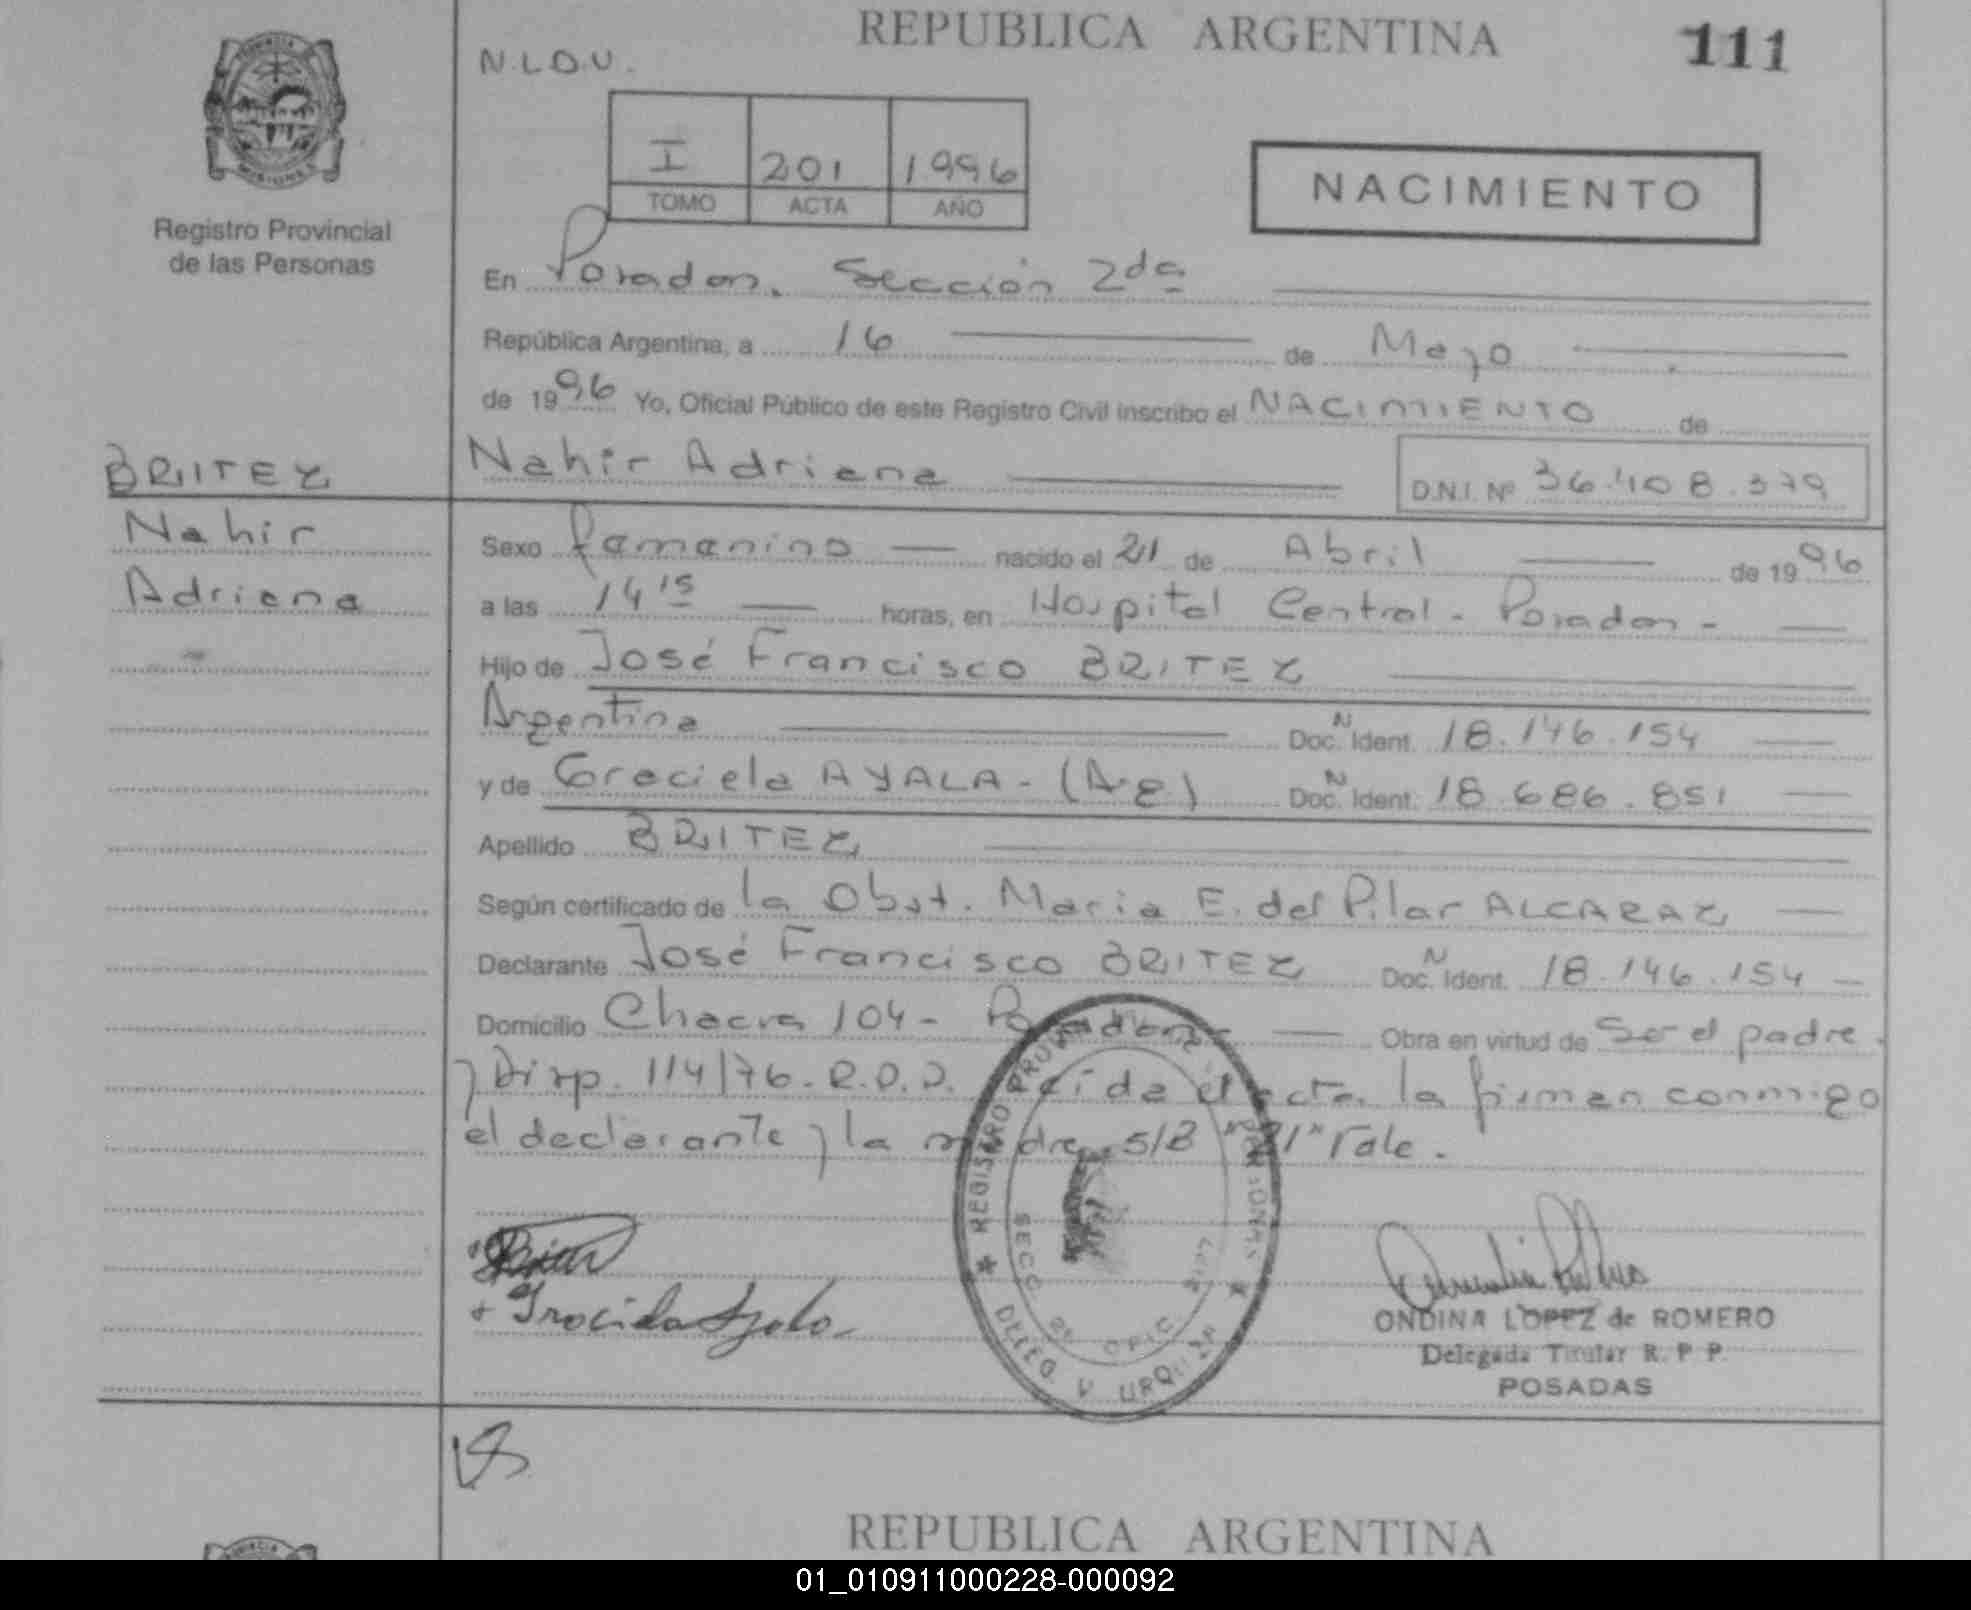 REPUBLICA ARGENTINA
111
N.L.O.U.
I 201 1996
TOMO ACTA AÑO
NACIMIENTO
Registro Provincial
de las Personas
En Posadas, Sección 2da
República Argentina, a 16 de Mayo
de 1996 Yo, Oficial Público de este Registro Civil inscribo el NACIMIENTO de
BRITEZ
Nahir Adriana
D.N.I. Nº 36.408.379
Nahir
Adriana
Sexo femenino nacido el 21 de Abril de 1996
a las 14 15 horas, en Hospital Central - Posadas -
Hijo de José Francisco BRITEZ
Argentina Doc. N Ident. 18.146.154
y de Graciela AYALA - (Arg) Doc. N Ident. 18.686.851
Apellido BRITEZ
Según certificado de la Obst. Maria E. del Pilar ALCARAZ
Declarante José Francisco BRITEZ Doc. N Ident. 18.146.154
Domicilio Chacra 104 - Posadas Obra en virtud de Ser el padre
y Disp. 114/76. R.O.D. Leída el acta la firman conmigo
el declarante y la madre, S/B "21" Vale.
REGISTRO PERSONAS
SECC 2
DELEG. V URQUIZA
ONDINA LOPEZ de ROMERO
Delegada Titular R. P. P.
POSADAS
REPUBLICA ARGENTINA
01_010911000228-000092